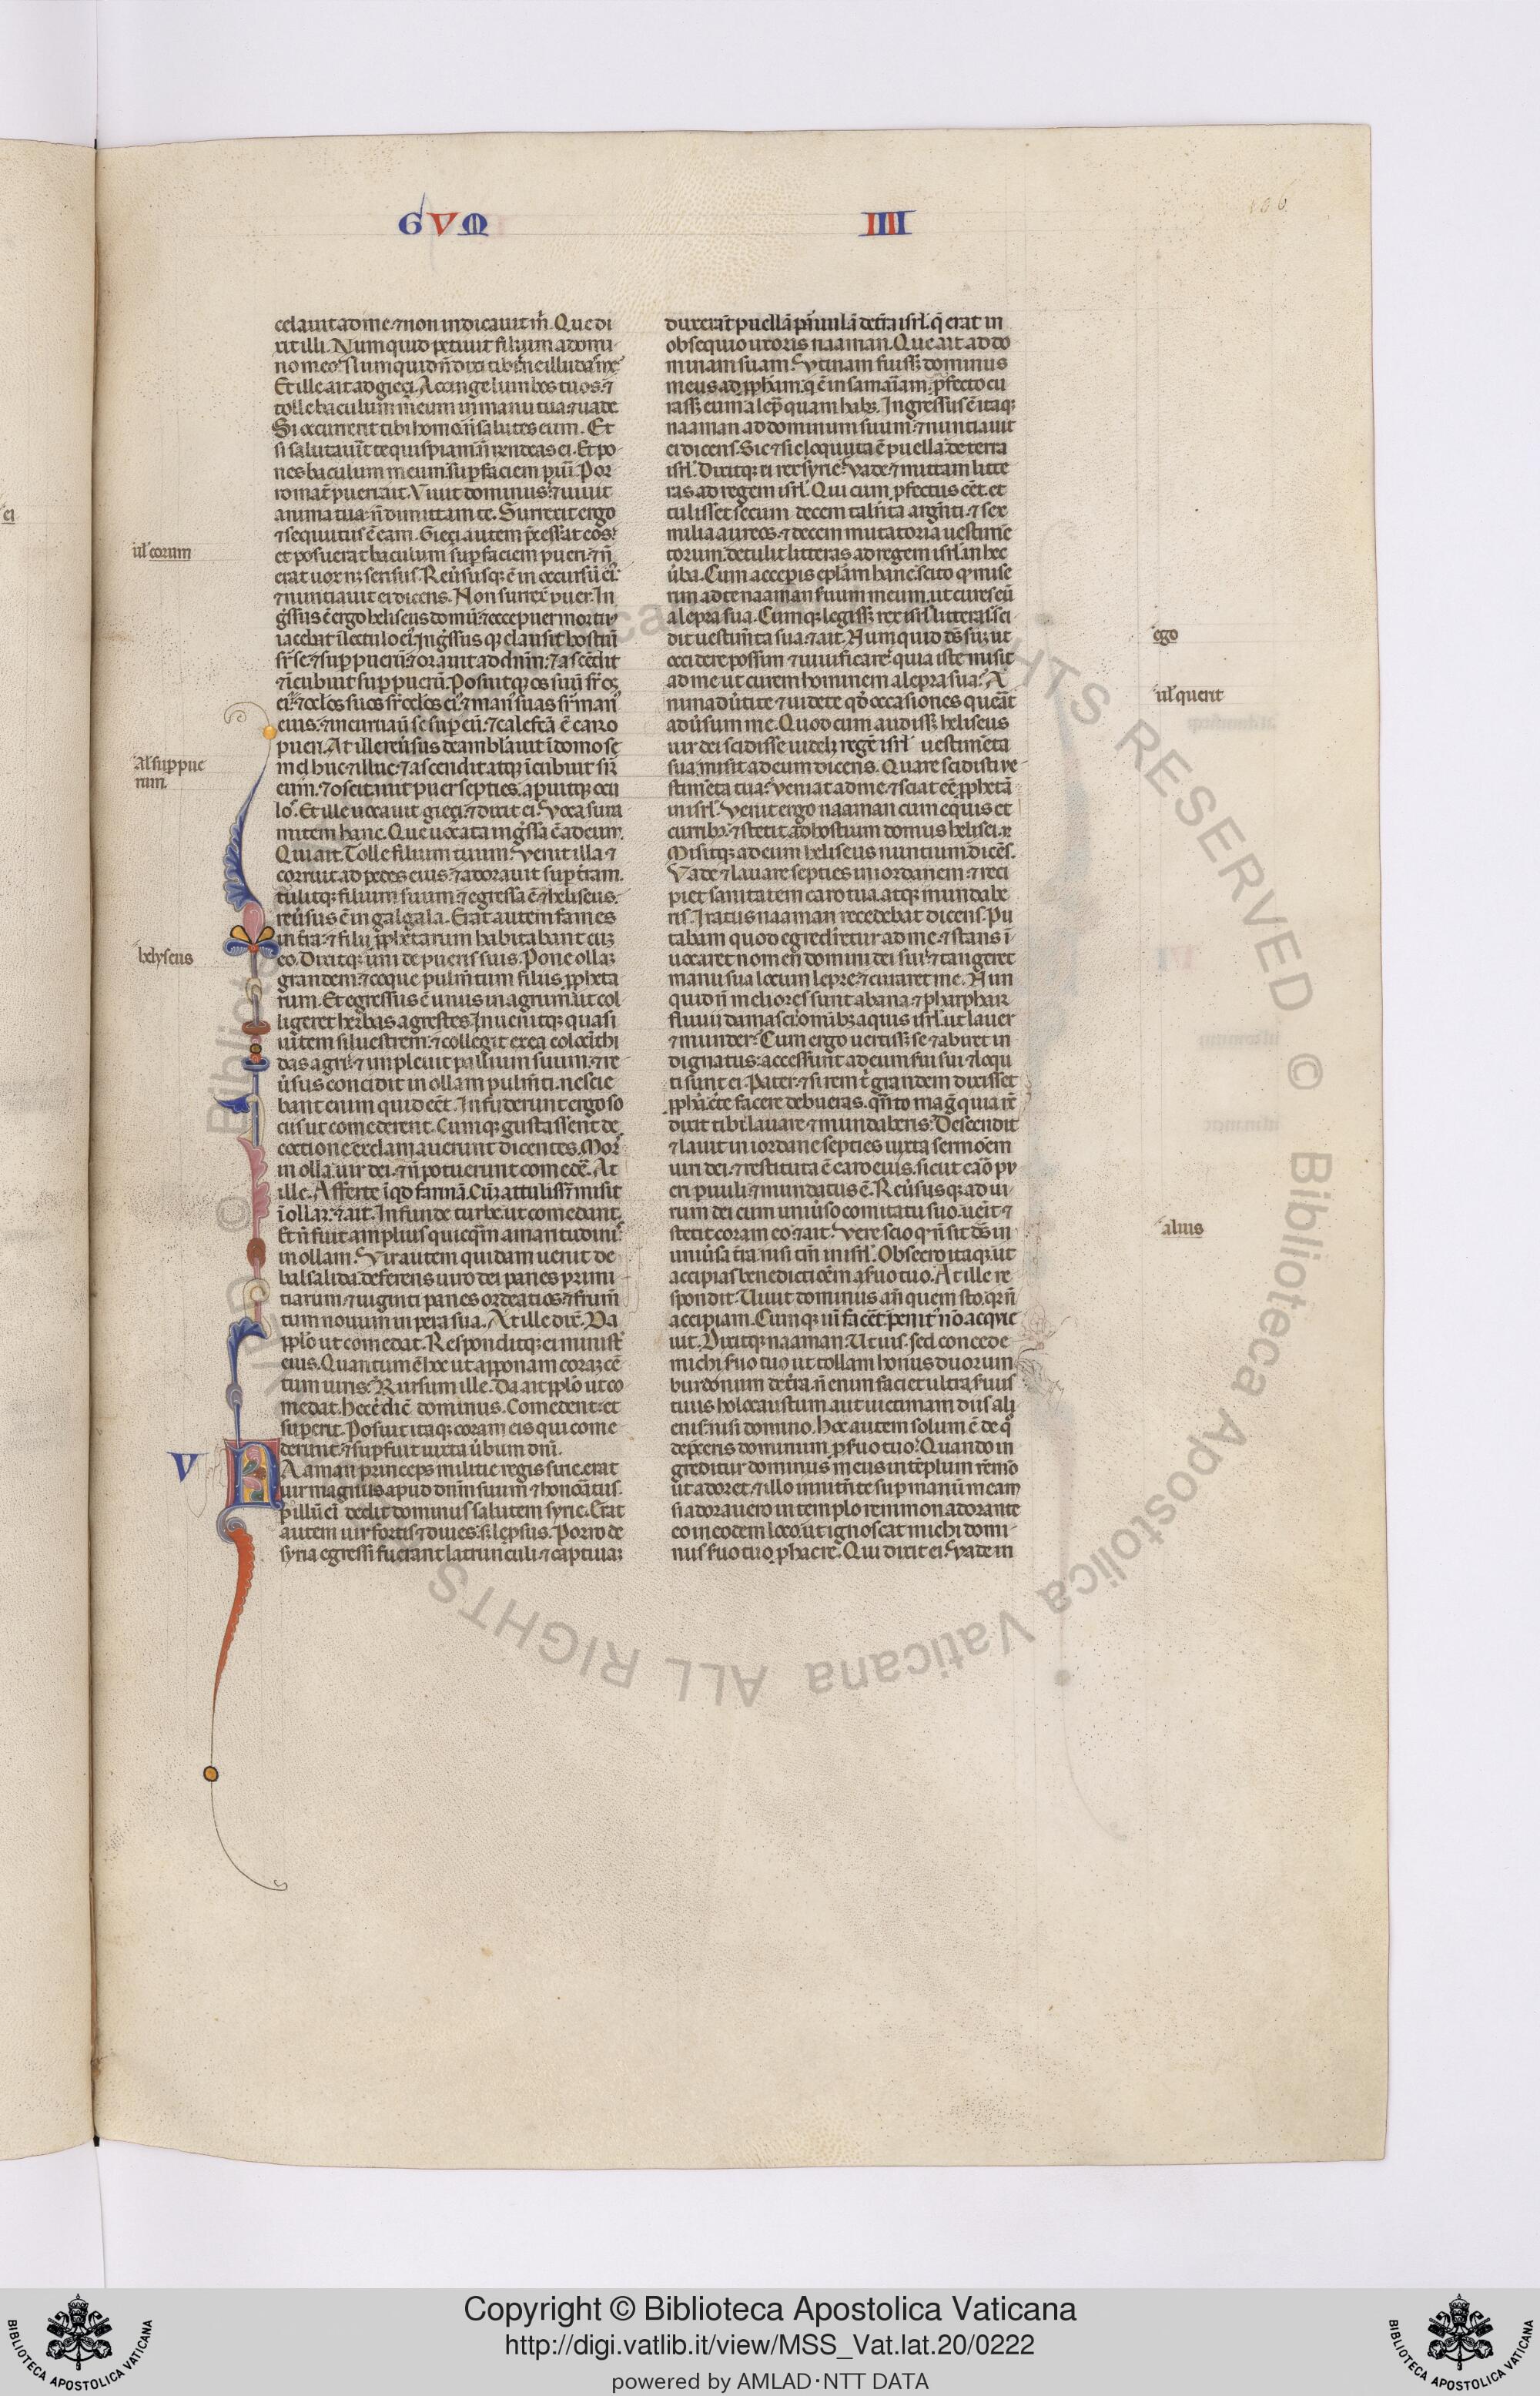 GVM
IIII
celauit ad me. ⁊ non indicauit m̄. Que di
xit illi. Numquid petiui filium a domi-
no meo? Numquid n̄ dixi tibi ne illudas me
Et ille ait ad gieçi. Accinge lumbos tuos. ⁊
tolle baculum meum in manu tua. ⁊ uade
Si occurrerit tibi homo n̄ salutes eum. Et
si salutauit te quispiam n̄ rn̄deas ei. Et po-
nes baculum meum sup faciem pueri. Por
ro mat̄ pueri ait. Viuit dominus. ⁊ uiuit
anima tua. n̄ dimittam te. Surrexit ergo
⁊ sequutus ē eam. Gieçi autem p̄cesserat eos.
et posuerat baculum sup faciem pueri. ⁊ n̄
erat uox nꝫ sensus. Reuersusqꝫ ē in occursū ei.
⁊ nuntiauit ei dicens. Non surrex̄ puer. In
gressus ē ergo heliseus domū. ⁊ ecce puer mortuꝰ
iacebat ī lectulo eiꝰ. Ingressusqꝫ clausit hostiū
sr̄ se. ⁊ sup puerū. ⁊ orauit ad dn̄m. ⁊ ascēdit
⁊ īcubuit sup puerū. Posuitqꝫ os suū sr̄ os
eiꝰ. ⁊ oclos suos sr̄ oclos eiꝰ. ⁊ manꝰ suas sr̄ manꝰ
eius. ⁊ incuruauit se sup eū. ⁊ calefcā ē caro
pueri. At ille reuersus deambulauit ī domo se
mel huc ⁊ illuc. ⁊ ascendit atqꝫ īcubuit sr̄
eum. ⁊ oscitauit puer septies. apuitqꝫ ocu
los. Et ille uocauit gieçi. ⁊ dixit ei. Voca suna
mitem hanc. Que uocata ingressa ē ad eum.
Qui ait. Tolle filium tuum. Venit illa ⁊
corruit ad pedes eius. ⁊ adorauit sup terram.
tulitqꝫ filium suum. ⁊ egressa ē ⁊ heliseus.
reuersus ē in galgala. Erat autem fames
in terra. ⁊ filij ꝓphetarum habitabant corā
eo. Dixitqꝫ uni de pueris suis. Pone ollam
grandem. ⁊ coque pulmtum filiis ꝓpheta
rum. Et egressus ē unus in agrum ut col
ligeret herbas agrestes. Inuenitqꝫ quasi
uitem siluestrem. ⁊ collegit ex ea coloc̄thi
das agri. ⁊ impleuit pallium suum. ⁊ re
uersus concidit in ollam pulmti. nescie
bant enim quid eēt. Infuderunt ergo so
ciis ut comederent. Cumqꝫ gustassent de
coctione exclamauerunt dicentes. Mors
in olla uir dei. ⁊ n̄ potuerunt comedē. At
ille. Afferte īqd farinā. Cūqꝫ attulissēt misit
ī ollam. ⁊ ait. Infunde turbe ut comedant.
Et n̄ fuit amplius quicqm̄ amaritudinis
in ollam. Vir autem quidam uenit de
balsalida. deferens uiro dei panes primi
tiarum. ⁊ uiginti panes ordeatios. ⁊ frum̄
tum nouum in pera sua. At ille dix̄. Da
pplo ut comedat. Responditqꝫ ei minist̄
eius. Quantum ē hoc ut apponam coram cē
tum uiris. Rursum ille. Da ait pplo ut co
medat. Hec ē dic̄ dominus. Comedent. et
superit. Posuit itaqꝫ coram eis qui come-
derunt. ⁊ supfuit iuxta ūbum dn̄i.
V
NAaman princeps militie regis sirie. erat
uir magnus apud dn̄m suum ⁊ honoratus.
p illū ei dedit dominus salutem syrie. Erat
autem uir fortis ⁊ diues. si leprsus. Porro de
syria egressi fuerant latrunculi. ⁊ captiuam
duxerāt puellā paruulā de terra isrl. q̄ erat in
obsequio uxoris naaman. Que ait ad do
minam suam. Vtinam fuissꝫ dominus
meus ad ꝓpham. q ē in samariam. ꝓfecto cu
rassꝫ eum a lepra quam habꝫ. Ingressus ē itaqꝫ
naaman ad dominum suum. ⁊ nuntiauit
ei dicens. Sic ⁊ sic loquuta ē puella de terra
isrl. Dixitqꝫ ei rex syrie. Vade ⁊ mittam litte
ras ad regem isrl. Qui cum ꝓfectus eēt. et
tulisset secum decem talnta argnti. ⁊ sex
milia aureos. ⁊ decem mutatoria uestime
torum. detulit litteras ad regem isrl. in hec
ūba. Cum acceperis eplam hanc. scito qꝫ mise
rim ad te naaman suum meum. ut cures eū
a lepra sua. Cumqꝫ legissꝫ rex isrl litteras. sci
dit uestimta sua. ⁊ ait. Numquid ds̄ sum ut
occidere possim ⁊ uiuificare. quia iste misit
ad me ut curem hominem a lepra sua? A
nimaduertite ⁊ uidete qd occasiones querāt
aduersum me. Quod cum audissꝫ heliseus
uir dei scidisse uidelꝫ regē isrl uestimēta
sua. misit ad eum dicens. Quare scidisti ue-
stimēta tua? Veniat ad me. ⁊ sciat eē ꝓphetā
in isrl. Venit ergo naaman cum equis et
curribꝫ. ⁊ stetit ad hostium domus helisei.
Misitqꝫ ad eum heliseus nuntium dicēs.
Vade ⁊ lauare septies in iordanem. ⁊ reci
piet sanitatem caro tua. atqꝫ mundabe
ris. Iratus naaman recedebat dicens. Pu
tabam quod egrederetur ad me. ⁊ stans ī-
uocaret nomen domini dei sui. ⁊ tangeret
manu sua locum lepre. ⁊ curaret me. Nun
quid n̄ meliores sunt abana. ⁊ pharphar
fluuii damasci. omibꝫ aquis isrl. ut lauer
⁊ munder? Cum ergo uertissꝫ se ⁊ abiret in
dignatus. accesserunt ad eum sui sui. ⁊ loqu
ti sunt ei. Pater. ⁊ si rem grandem dixisset
ꝓpha. certe facere debueras. qn̄to mag quia nc̄
dixit tibi. lauare ⁊ mundaberis. Descendit
⁊ lauit in iordane septies iuxta sermoēm
uiri dei. ⁊ restituta ē caro eius. sicut caro pu
eri paruuli. ⁊ mundatus ē. Reuersusqꝫ ad ui-
rum dei cum uniuerso comitatu suo. uenit ⁊
stetit coram eo. ⁊ ait. Vere scio qꝫ n̄ sit ds̄ in
uniuersa terra. nisi tm̄ in isrl. Obsecro itaqꝫ ut
accipias benedictioēm a suo tuo. At ille re
spondit. Viuit dominus an̄ quem sto. qꝫ n̄
accipiam. Cumqꝫ uim faceēt. penitꝰ nō acquie
uit. Dixitqꝫ naaman. Ut uis. sed concede
michi suo tuo ut tollam honus duorum
burdonum de terra. n̄ enim faciet ultra suus
tuus holocaustum. aut uictimam diis ali
enis. nisi domino. Hoc autem solum ē de qͦ
depreceris dominum. p suo tuo. Quando in
greditur dominus meus in templum remō
ut adoret. ⁊ illo innitn̄te sup manū meam
si adorauero in templo remmon adorante
eo in eodem loco. ut ignoscat michi domi-
nus suo tuo p hac re. Qui dixit ei. Vade in
ul' eorum
al' sup pue
rum.
helyseus
ego
ul' querit
alius
Copyright © Biblioteca Apostolica Vaticana
http://digi.vatlib.it/view/MSS_Vat.lat.20/0222
powered by AMLAD·NTT DATA
BIBLIOTECA APOSTOLICA VATICANA
BIBLIOTECA APOSTOLICA VATICANA
© Biblioteca Apostolica Vaticana ALL RIGHTS RESERVED